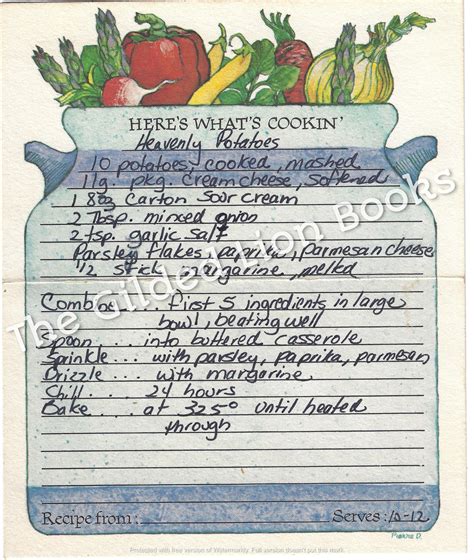 HERE'S WHAT'S COOKIN'
Heavenly Potatoes
10 potatoes, cooked, mashed
11g. pkg. cream cheese, softened
1 8oz carton sour cream
2 Tbsp. minced onion
2 tsp. garlic salt
Parsley flakes, paprika, parmesan cheese
1/2 stick margarine, melted
Combine... first 5 ingredients in large
bowl, beating well
Spoon .... into buttered casserole
Sprinkle ... with parsley, paprika, parmesan
Drizzle .... with margarine
Chill .... 24 hours
Bake .... at 325° until heated
through
Recipe from: Serves: 10-12
The Gilded Lion Books
Protected with free version of Watermarkly. Full version doesn't put this mark.